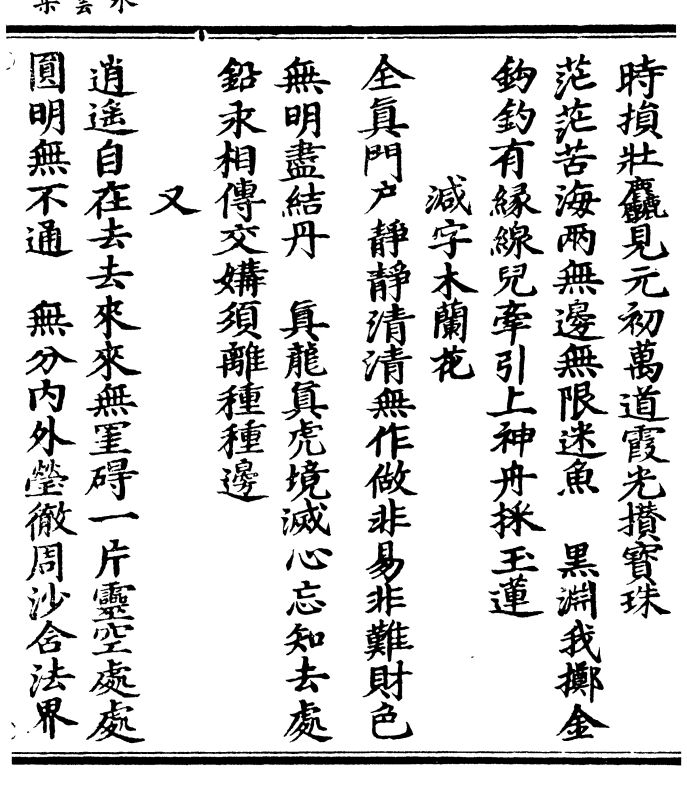 時損壯麤見元初萬道霞光攅寶珠
茫茫苦海兩無邊無限迷魚　黑淵我擲金
鈎釣有縁線兒牽引上神舟採玉蓮
減字木蘭花
全眞門戶靜靜清清無作做非易非難財色
無明盡結丹　眞龍眞虎境滅心忘知去處
鉛汞相傳交媾須離種種邊
又
逍遥自在去去來來無罣碍一片靈空處處
圓明無不通　無分内外瑩徹周沙含法界